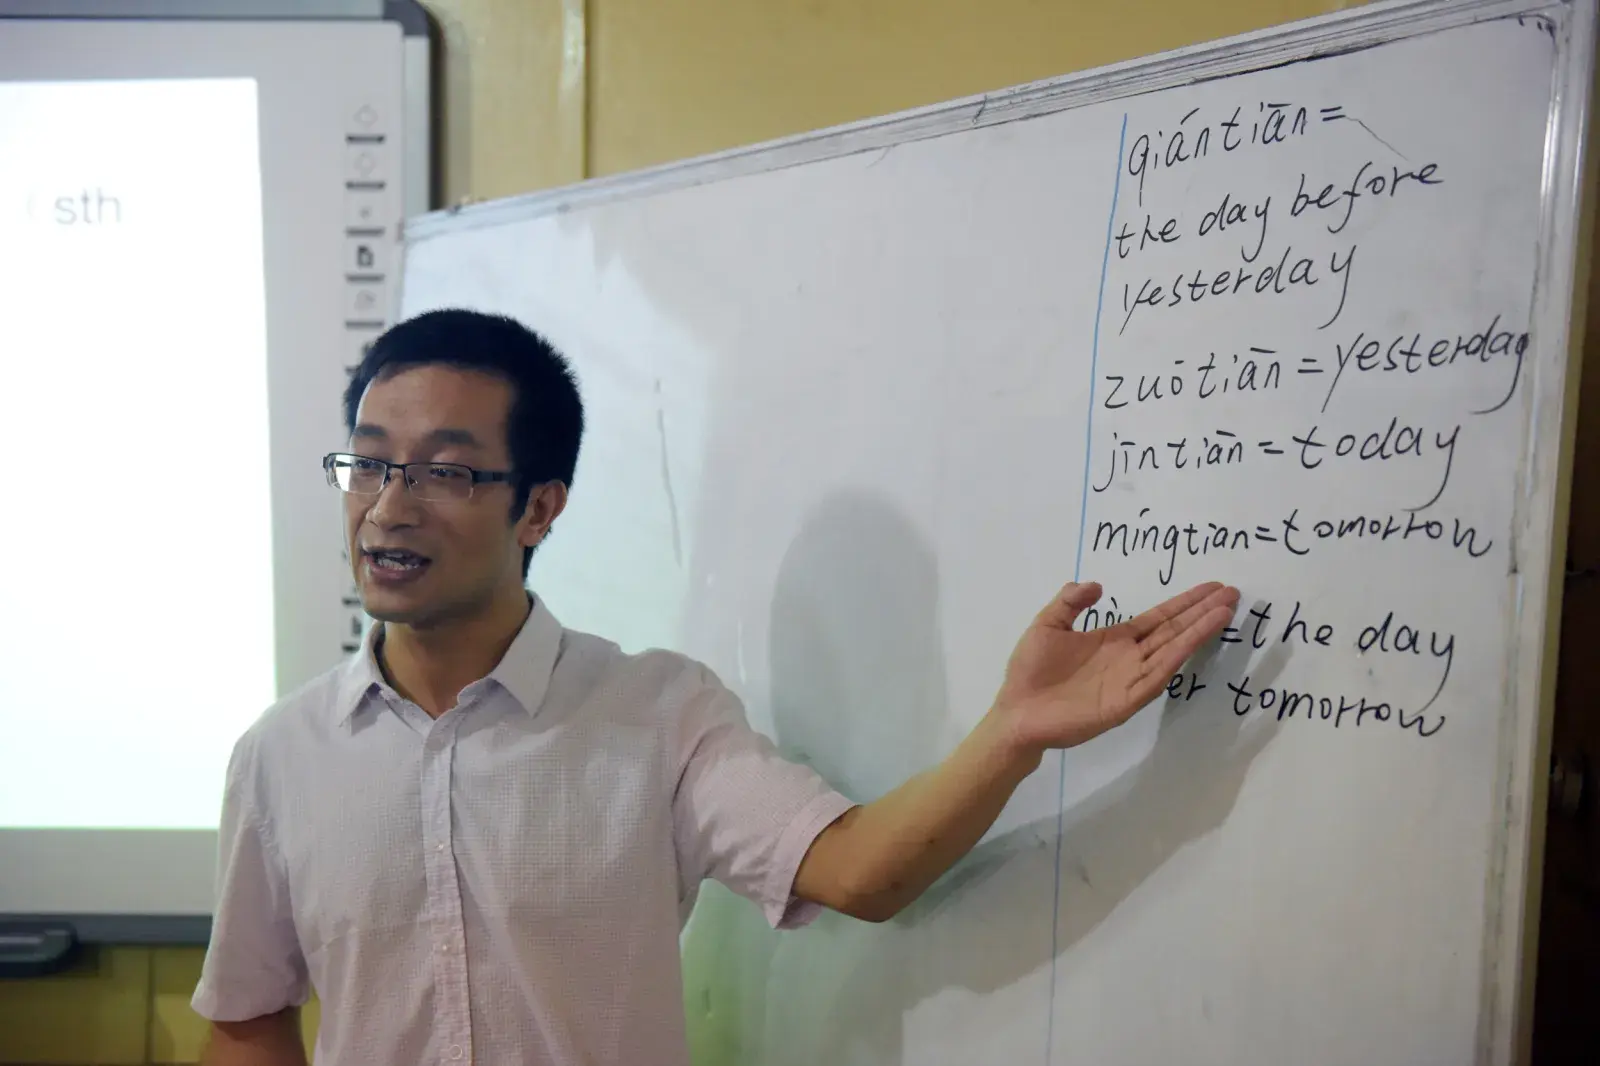 sth
qiántiān =
the day before
yesterday
zuōtiān = yesterday
jīntiān = today
míngtiān = tomorrow
= the day
tomorrow